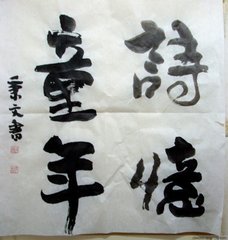 詩憶
童年
秉文書